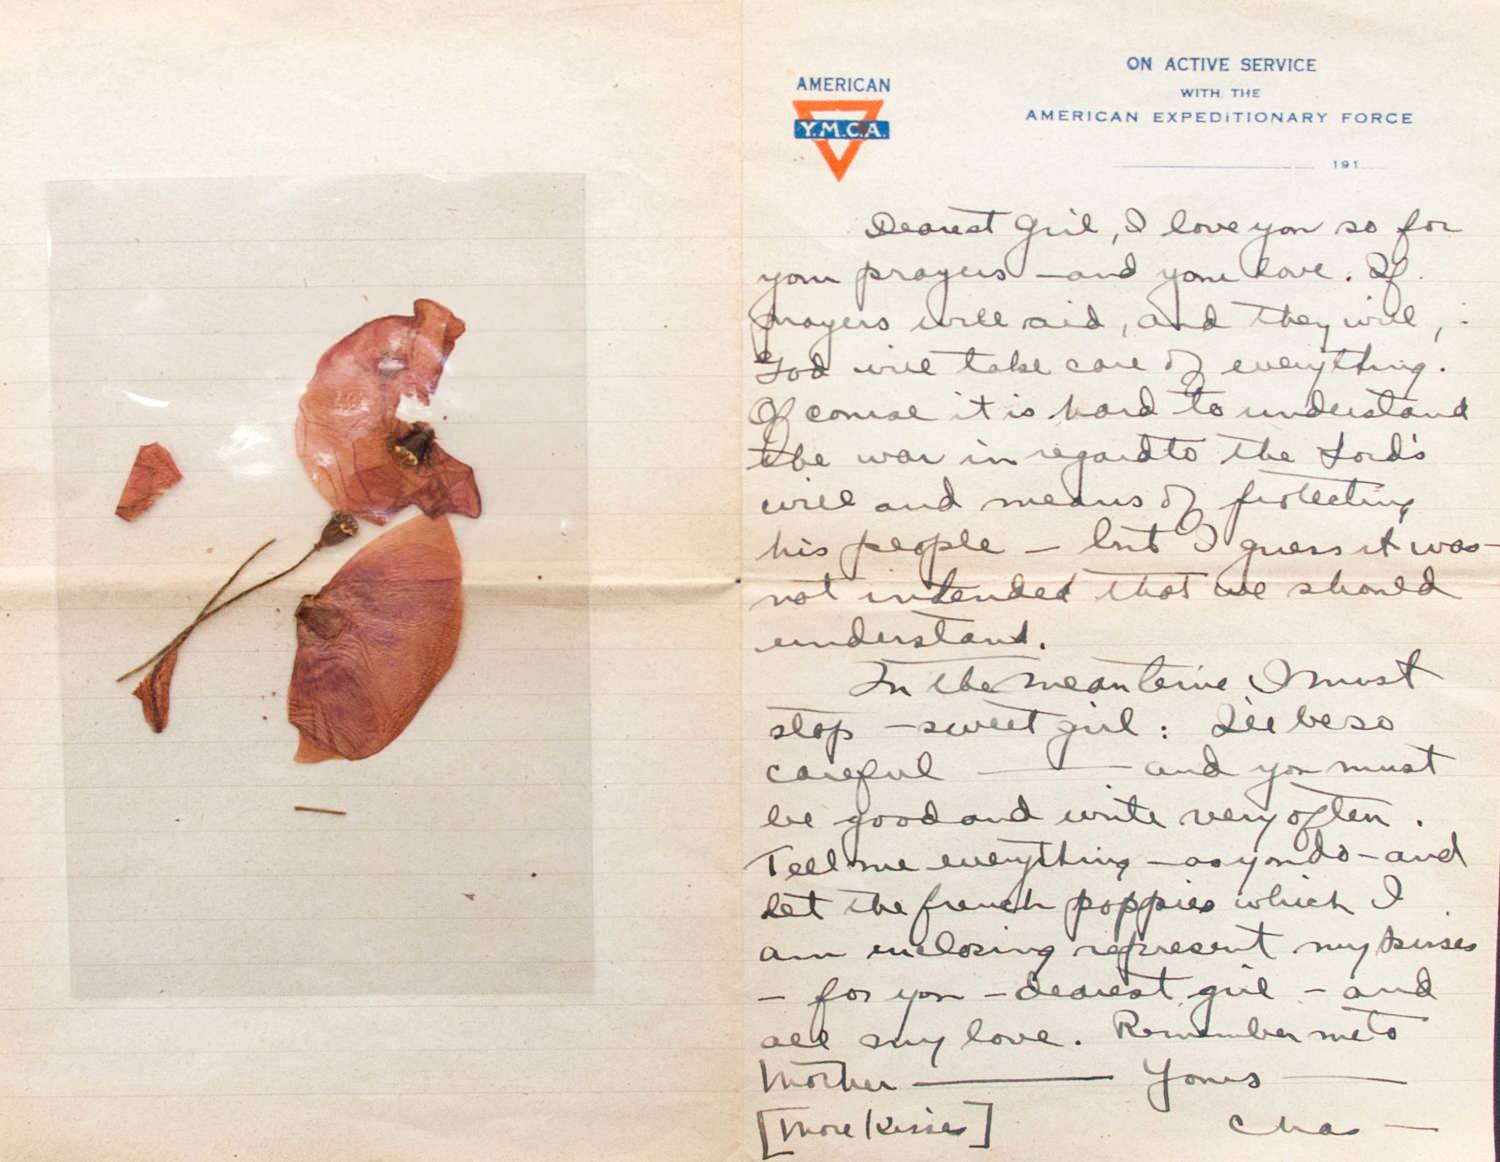 AMERICAN
Y.M.C.A.
ON ACTIVE SERVICE
WITH THE
AMERICAN EXPEDITIONARY FORCE
191
Dearest Girl, I love you so for
your prayers — and your love. If
prayers will aid, and they will,
God will take care of everything.
Of course it is hard to understand
the war in regard to the Lord's
will and means of protecting
his people — but I guess it was
not intended that we should
understand.
In the meantime I must
stop — sweet girl : I'll be so
careful — and you must
be good and write very often.
Tell me everything — as you do — and
let the french poppies which I
am enclosing represent my kisses
— for you — dearest girl — and
all my love. Remember me to
Mother — Yours —
[More Kisses] Chas —